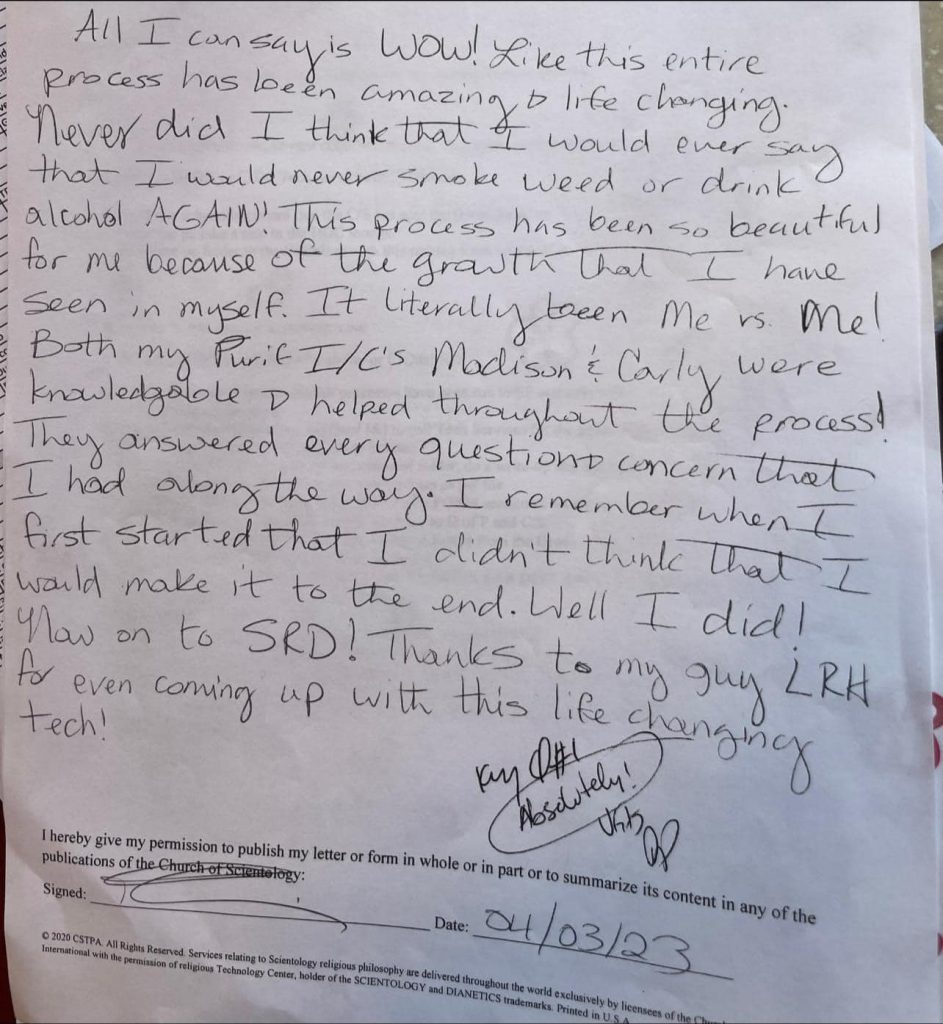 All I can say is WOW! Like this entire
process has been amazing & life changing.
Never did I think that I would ever say
that I would never smoke weed or drink
alcohol AGAIN! This process has been so beautiful
for me because of the growth that I have
seen in myself. It literally been Me vs. Me!
Both my Purif I/C's Madison & Carly were
knowledgable & helped throughout the process!
They answered every question & concern that
I had along the way. I remember when I
first started that I didn't think that I
would make it to the end. Well I did!
Now on to SRD! Thanks to my guy LRH
for even coming up with this life changing
tech!
Absolutely!
I hereby give my permission to publish my letter or form in whole or in part or to summarize its content in any of the
publications of the Church of Scientology:
Signed:
Date: 04/03/23
© 2020 CSTPA. All Rights Reserved. Services relating to Scientology religious philosophy are delivered throughout the world exclusively by licensees of the
International with the permission of religious Technology Center, holder of the SCIENTOLOGY and DIANETICS trademarks. Printed in U.S.A.